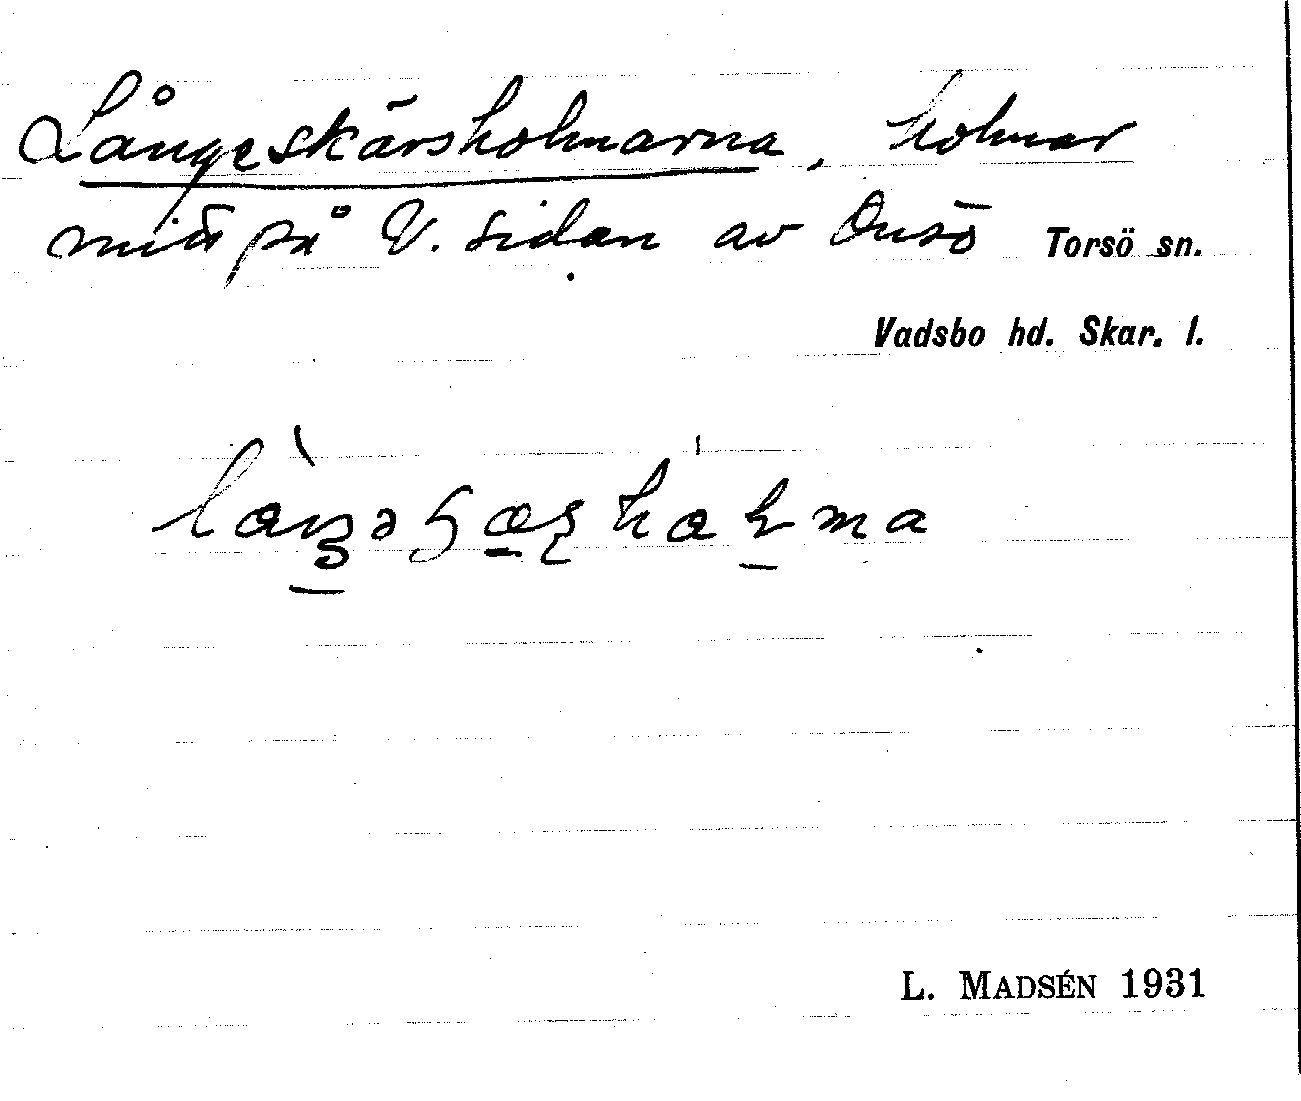 Långeskärsholmarna, holmar
mitt på V. sidan av Onsö Torsö sn.
Vadsbo hd. Skar. l.
L. MADSÉN 1931